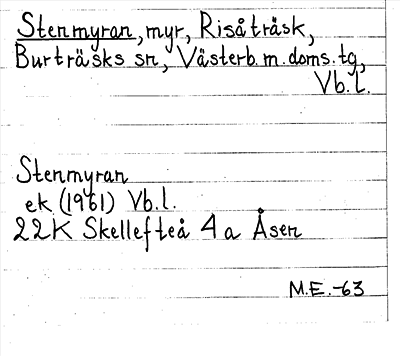 Stenmyran, myr, Risåträsk,
Burträsks sn, Västerb. m. doms. tg,
Vb. l.
Stenmyran
ek (1961) Vb. l.
22K Skellefteå 4a Åsen
M.E.-63